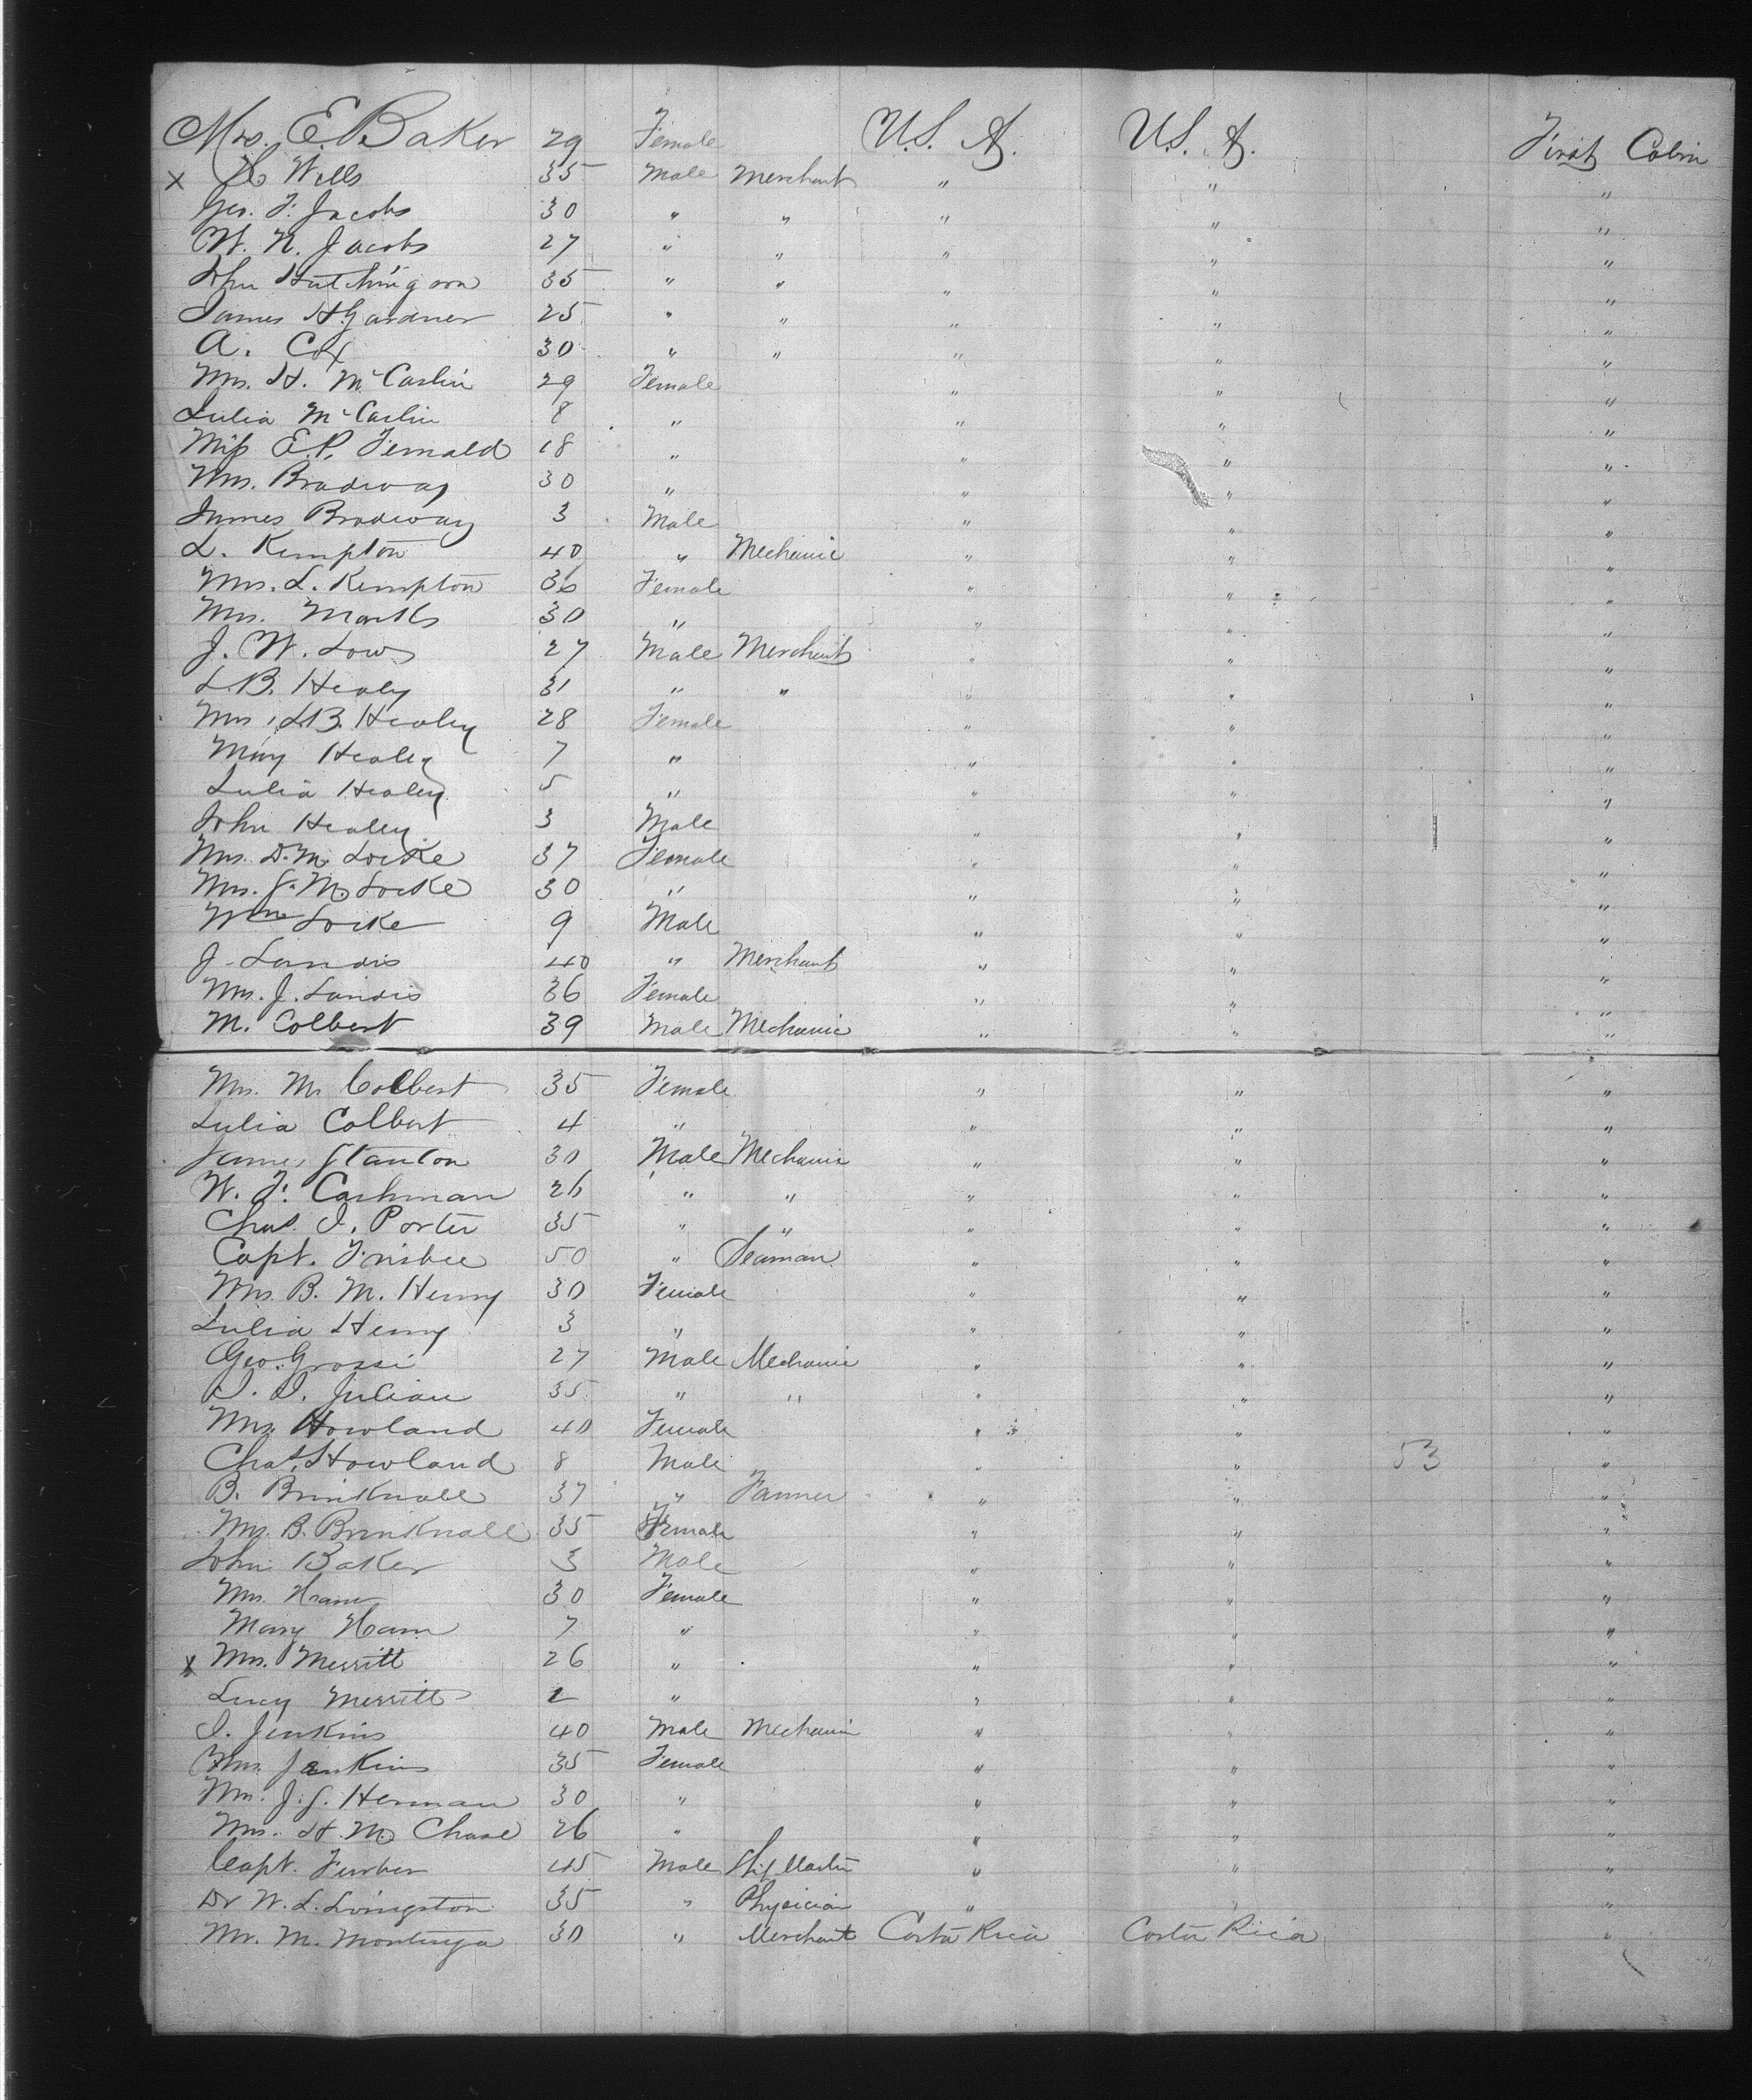 Mrs. E. Baker 29 Female U.S.A. U.S.A. First Cabin
x Wills 35 Male Merchant " " "
Geo. F. Jacobs 30 " " " " "
W. N. Jacobs 27 " " " " "
John Hutchingson 35 " " " " "
James H Gardner 25 " " " " "
A. Cox 30 " " " " "
Mrs. H. McCaslin 29 Female " " "
Julia McCaslin 8 " " " "
Miss E. P. Fernald 18 " " " "
Mrs. Bradway 30 " " " "
James Bradway 3 Male " " "
L. Kempton 40 " Mechanic " " "
Mrs. L. Kempton 36 Female " " "
Mrs. Marks 30 " " " "
J. W. Low 27 Male Merchant " " "
L.B. Healy 31 " " " " "
Mrs. L.B. Healey 28 Female " " "
May Healey 7 " " " "
Julia Healey 5 " " " "
John Healey 3 Male " " "
Mrs. D. M. Locke 37 Female " " "
Mrs. J. M. Locke 30 " " " "
Wm Locke 9 Male " " "
J. Landis 40 " Merchant " " "
Mrs. J. Landis 36 Female " " "
M. Colbert 39 Male Mechanic " " "
Mrs. M. Colbert 35 Female " " "
Julia Colbert 4 " " " "
James Stanton 30 Male Mechanic " " "
W. F. Cashman 26 " " " " "
Chas. I. Porter 35 " " " " "
Capt. Frisbee 50 " Seaman " " "
Mrs. B. M. Henry 30 Female " " "
Julia Henry 3 " " " "
Geo. Grossi 27 Male Mechanic " " "
Julian 35 " " " " "
Mrs. Howland 40 Female " " "
Chas. Howland 8 Male " " 53 "
B. Brinknall 37 " Farmer " " "
Mrs. B. Brinknall 35 Female " " "
John Baker 3 Male " " "
Mrs. Ham 30 Female " " "
Mary Ham 7 " " " "
x Mrs. Merritt 26 " " " "
Lucy Merritt 2 " " " "
I. Jenkins 40 Male Mechanic " " "
Mrs. Jenkins 35 Female " " "
Mrs. J. G. Herman 30 " " " "
Mrs. H. M. Chase 26 " " " "
Capt. Furber 45 Male Ship Master " " "
Dr W. L. Livingston 35 " Physician " " "
Mr. M. 30 " Merchant Costa Rica Costa Rica "